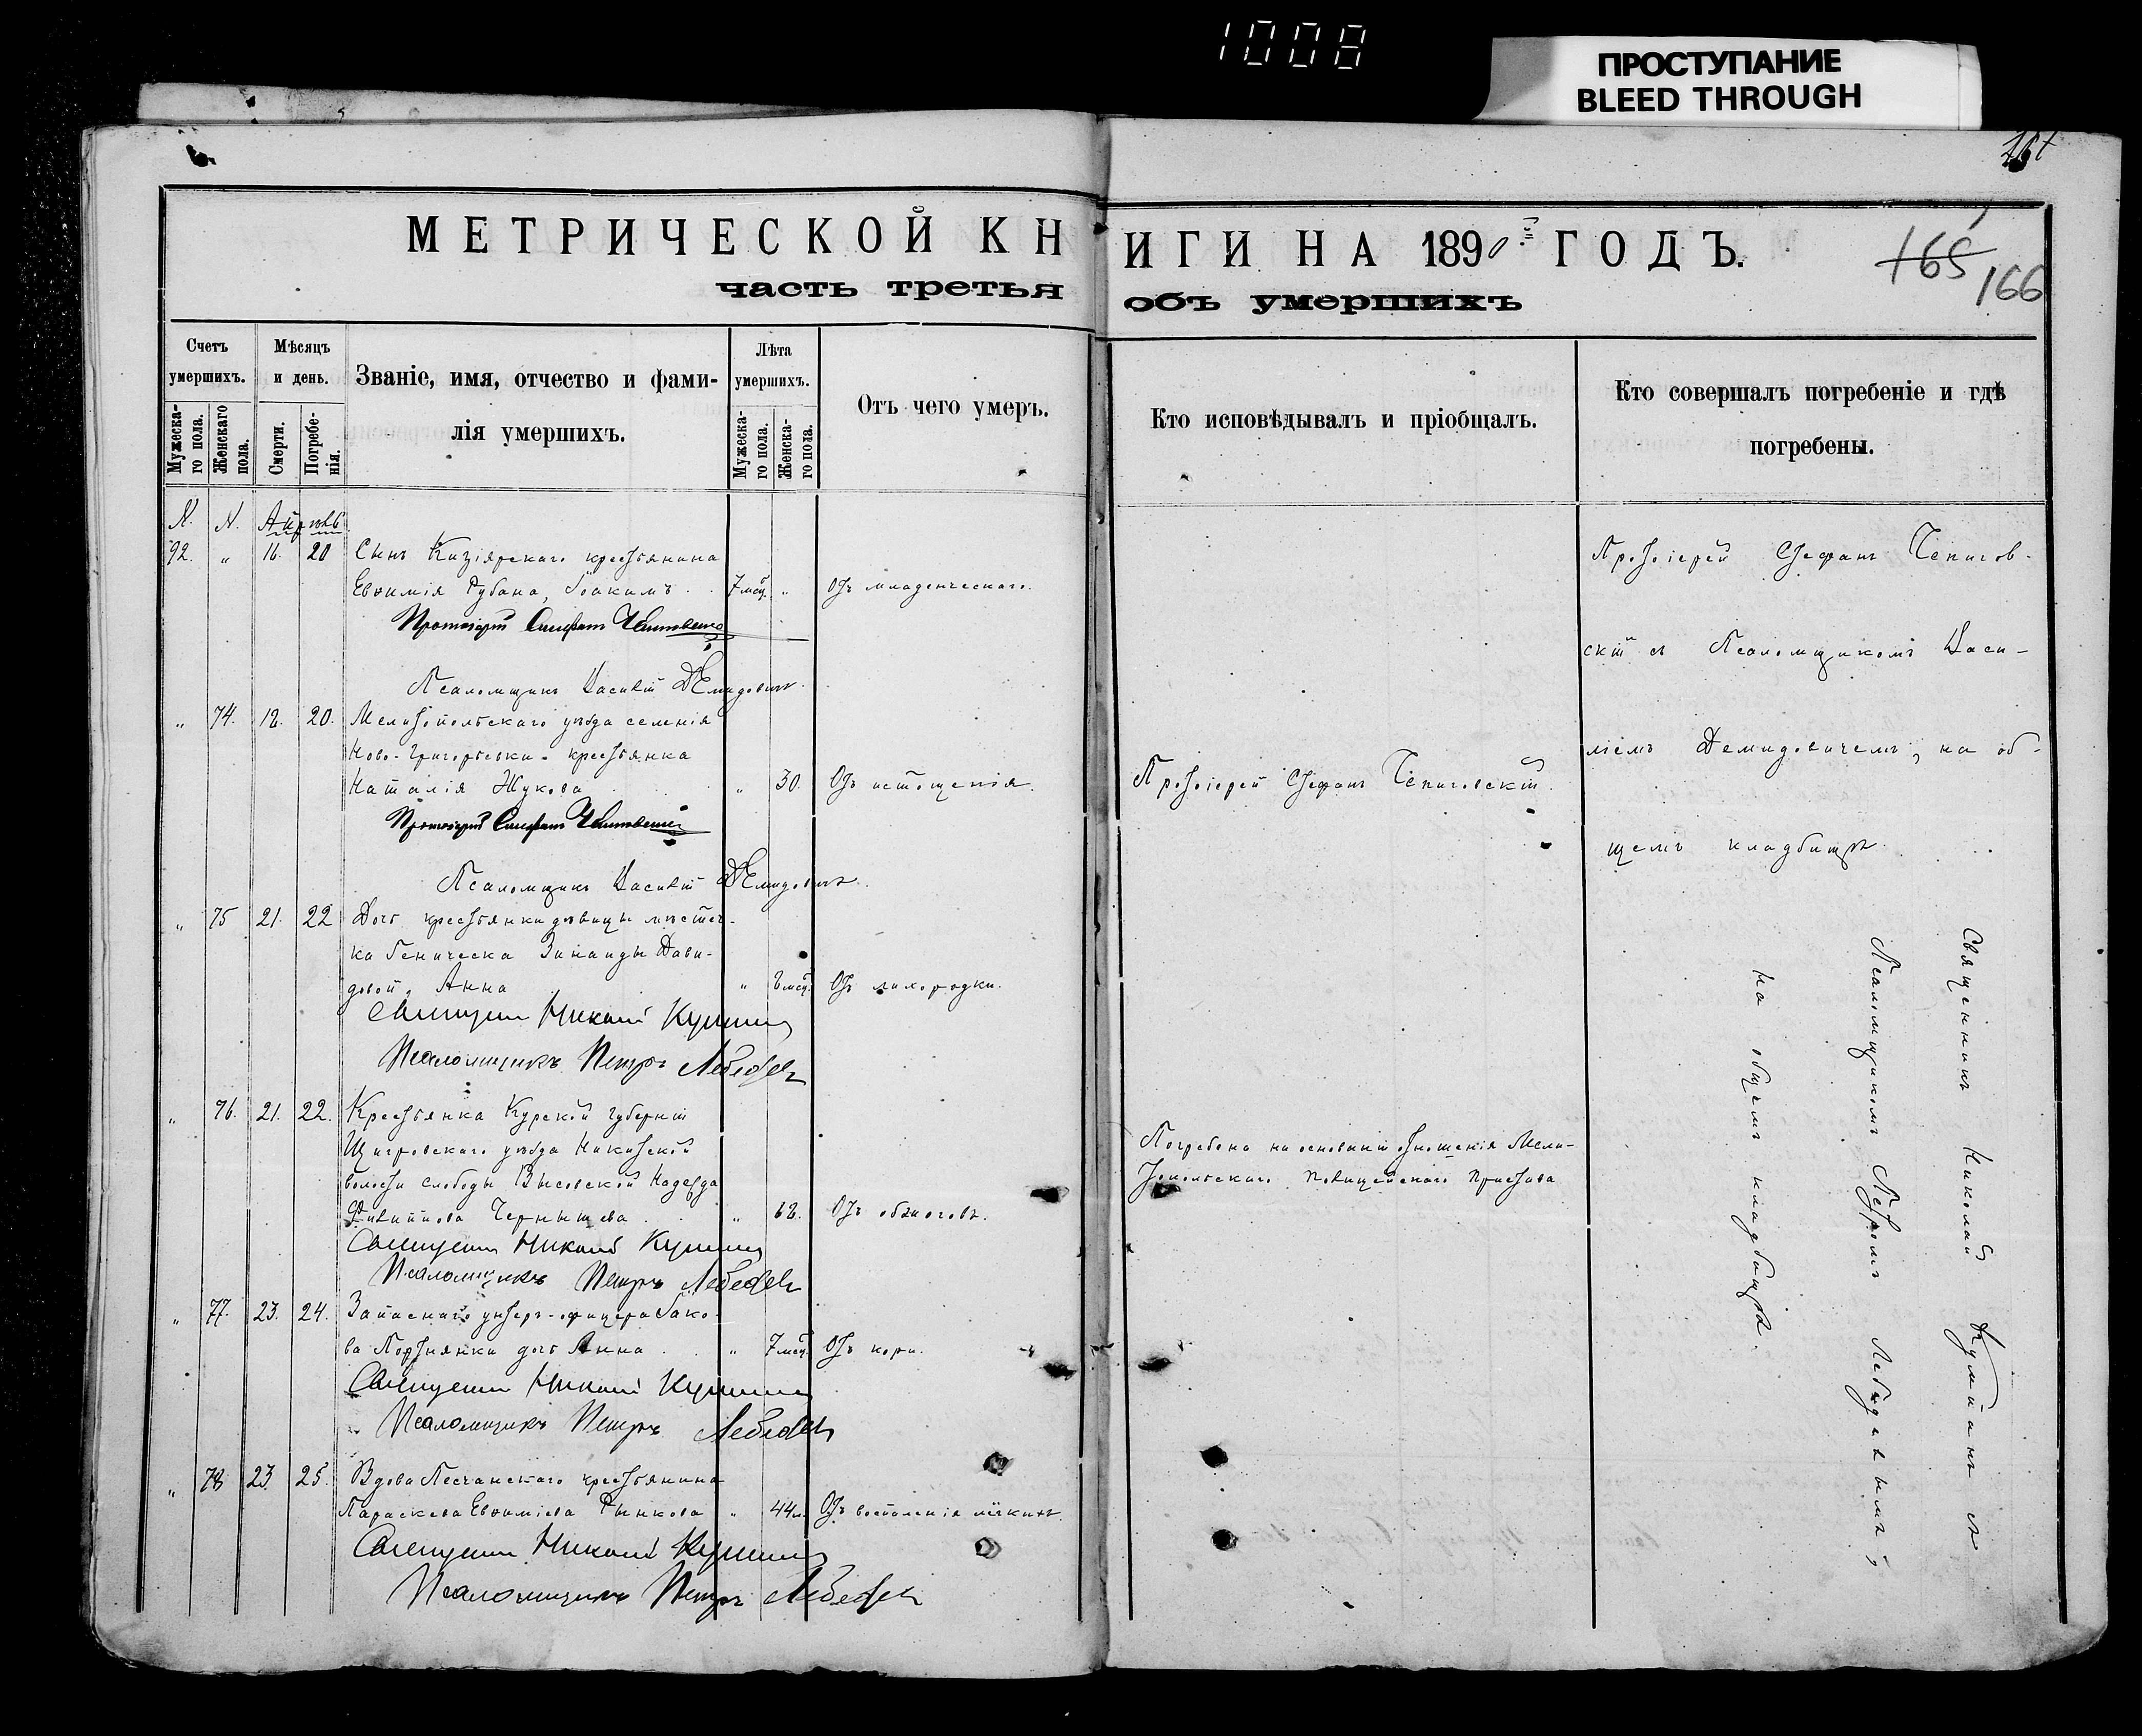 1008
ПРОСТУПАНИЕ
BLEED THROUGH
МЕТРИЧЕСКОЙ КНИГИ НА 1890 ГОДЪ.
165
166
часть третья объ умершихъ
Счетъ умершихъ.
Мужеска-го пола.
Женскаго пола.
Мѣсяцъ и день.
Смерти.
Погребе-нія.
Званіе, имя, отчество и фами-
лія умершихъ.
Лѣта умершихъ.
Мужеска-го пола.
Женска-го пола.
Отъ чего умеръ.
Кто исповѣдывалъ и пріобщалъ.
Кто совершалъ погребеніе и гдѣ
погребены.
N. N. Апрѣль
92. " 16. 20 Сынъ крестьянина
Евѳимія Рубана, Іоакимъ 7 мсц. " Отъ младенческаго.
Протоіерей Стефанъ
Псаломщикъ Василій Демидовичъ
" 74. 18. 20. Мелитопольскаго уѣзда селенія
Ново-Григорьевки крестьянка
Наталія Жукова " 30. Отъ истощенія.
Протоіерей Стефанъ
Псаломщикъ Василій Демидовичъ
" 75 21. 22 Дочь крестьянки дѣвицы мѣстеч-
ка Геническа Зинаиды Дави-
довой, Анна " 8 мсц. Отъ лихорадки.
Священникъ Николай
Псаломщикъ Петръ Лебедев
" 76. 21. 22. Крестьянка Курской губерніи
Щигровскаго уѣзда Никитской
волости слободы Высовской Надежда
Филиппова Чернышева " 68. Отъ обжоговъ.
Священникъ Николай
Псаломщикъ Петръ Лебедев
" 77. 23. 24. Запаснаго унтеръ-офицера Іако-
ва Портнянки дочь Анна " 7 мсц. Отъ кори.
Священникъ Николай
Псаломщикъ Петръ Лебедев
" 78 23. 25. Вдова Песчанскаго крестьянина
Параскева Евѳиміева Рынкова " 44 л. Отъ воспаленія легкихъ.
Священникъ Николай
Псаломщикъ Петръ Лебедев
Протоіерей Стефанъ Чепигов-
скій.
Погребена на основаніи отношенія Мели-
топольскаго Полицейскаго Пристава
Протоіерей Стефанъ Чепигов-
скій съ Псаломщикомъ Васи-
ліемъ Демидовичемъ, на об-
щемъ кладбищѣ.
Священникъ Николай съ
Псаломщикомъ Петромъ Лебедевымъ,
на общемъ кладбищѣ.